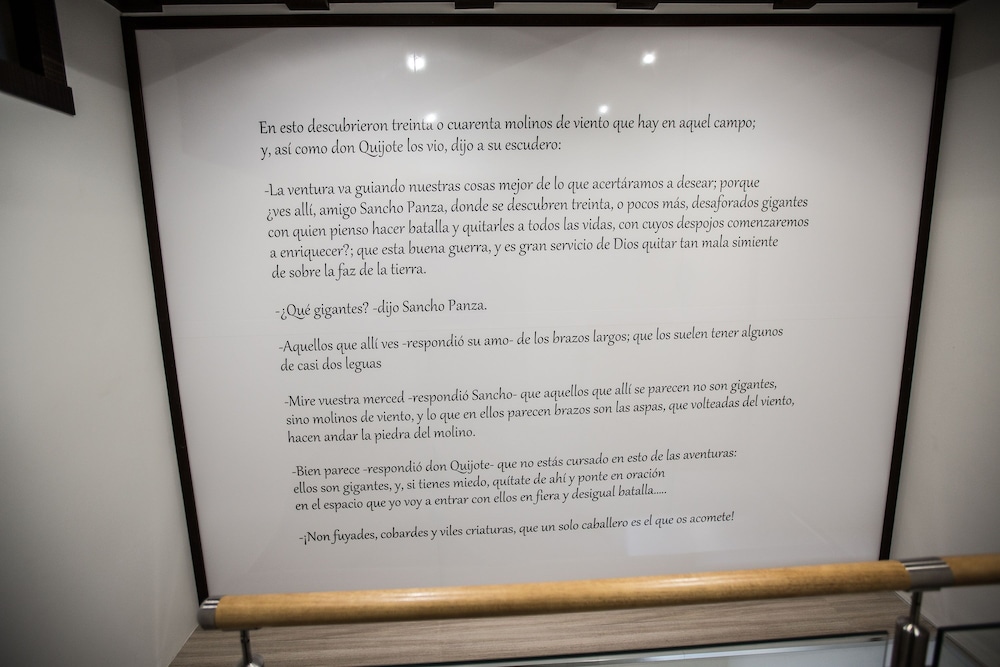 En esto descubrieron treinta o cuarenta molinos de viento que hay en aquel campo;
y, así como don Quijote los vio, dijo a su escudero:
-La ventura va guiando nuestras cosas mejor de lo que acertáramos a desear; porque
¿ves allí, amigo Sancho Panza, donde se descubren treinta, o pocos más, desaforados gigantes
con quien pienso hacer batalla y quitarles a todos las vidas, con cuyos despojos comenzaremos
a enriquecer?; que esta buena guerra, y es gran servicio de Dios quitar tan mala simiente
de sobre la faz de la tierra.
-¿Qué gigantes? -dijo Sancho Panza.
-Aquellos que allí ves -respondió su amo- de los brazos largos; que los suelen tener algunos
de casi dos leguas
-Mire vuestra merced -respondió Sancho- que aquellos que allí se parecen no son gigantes,
sino molinos de viento, y lo que en ellos parecen brazos son las aspas, que volteadas del viento,
hacen andar la piedra del molino.
-Bien parece -respondió don Quijote- que no estás cursado en esto de las aventuras:
ellos son gigantes, y, si tienes miedo, quítate de ahí y ponte en oración
en el espacio que yo voy a entrar con ellos en fiera y desigual batalla.....
-¡Non fuyades, cobardes y viles criaturas, que un solo caballero es el que os acomete!